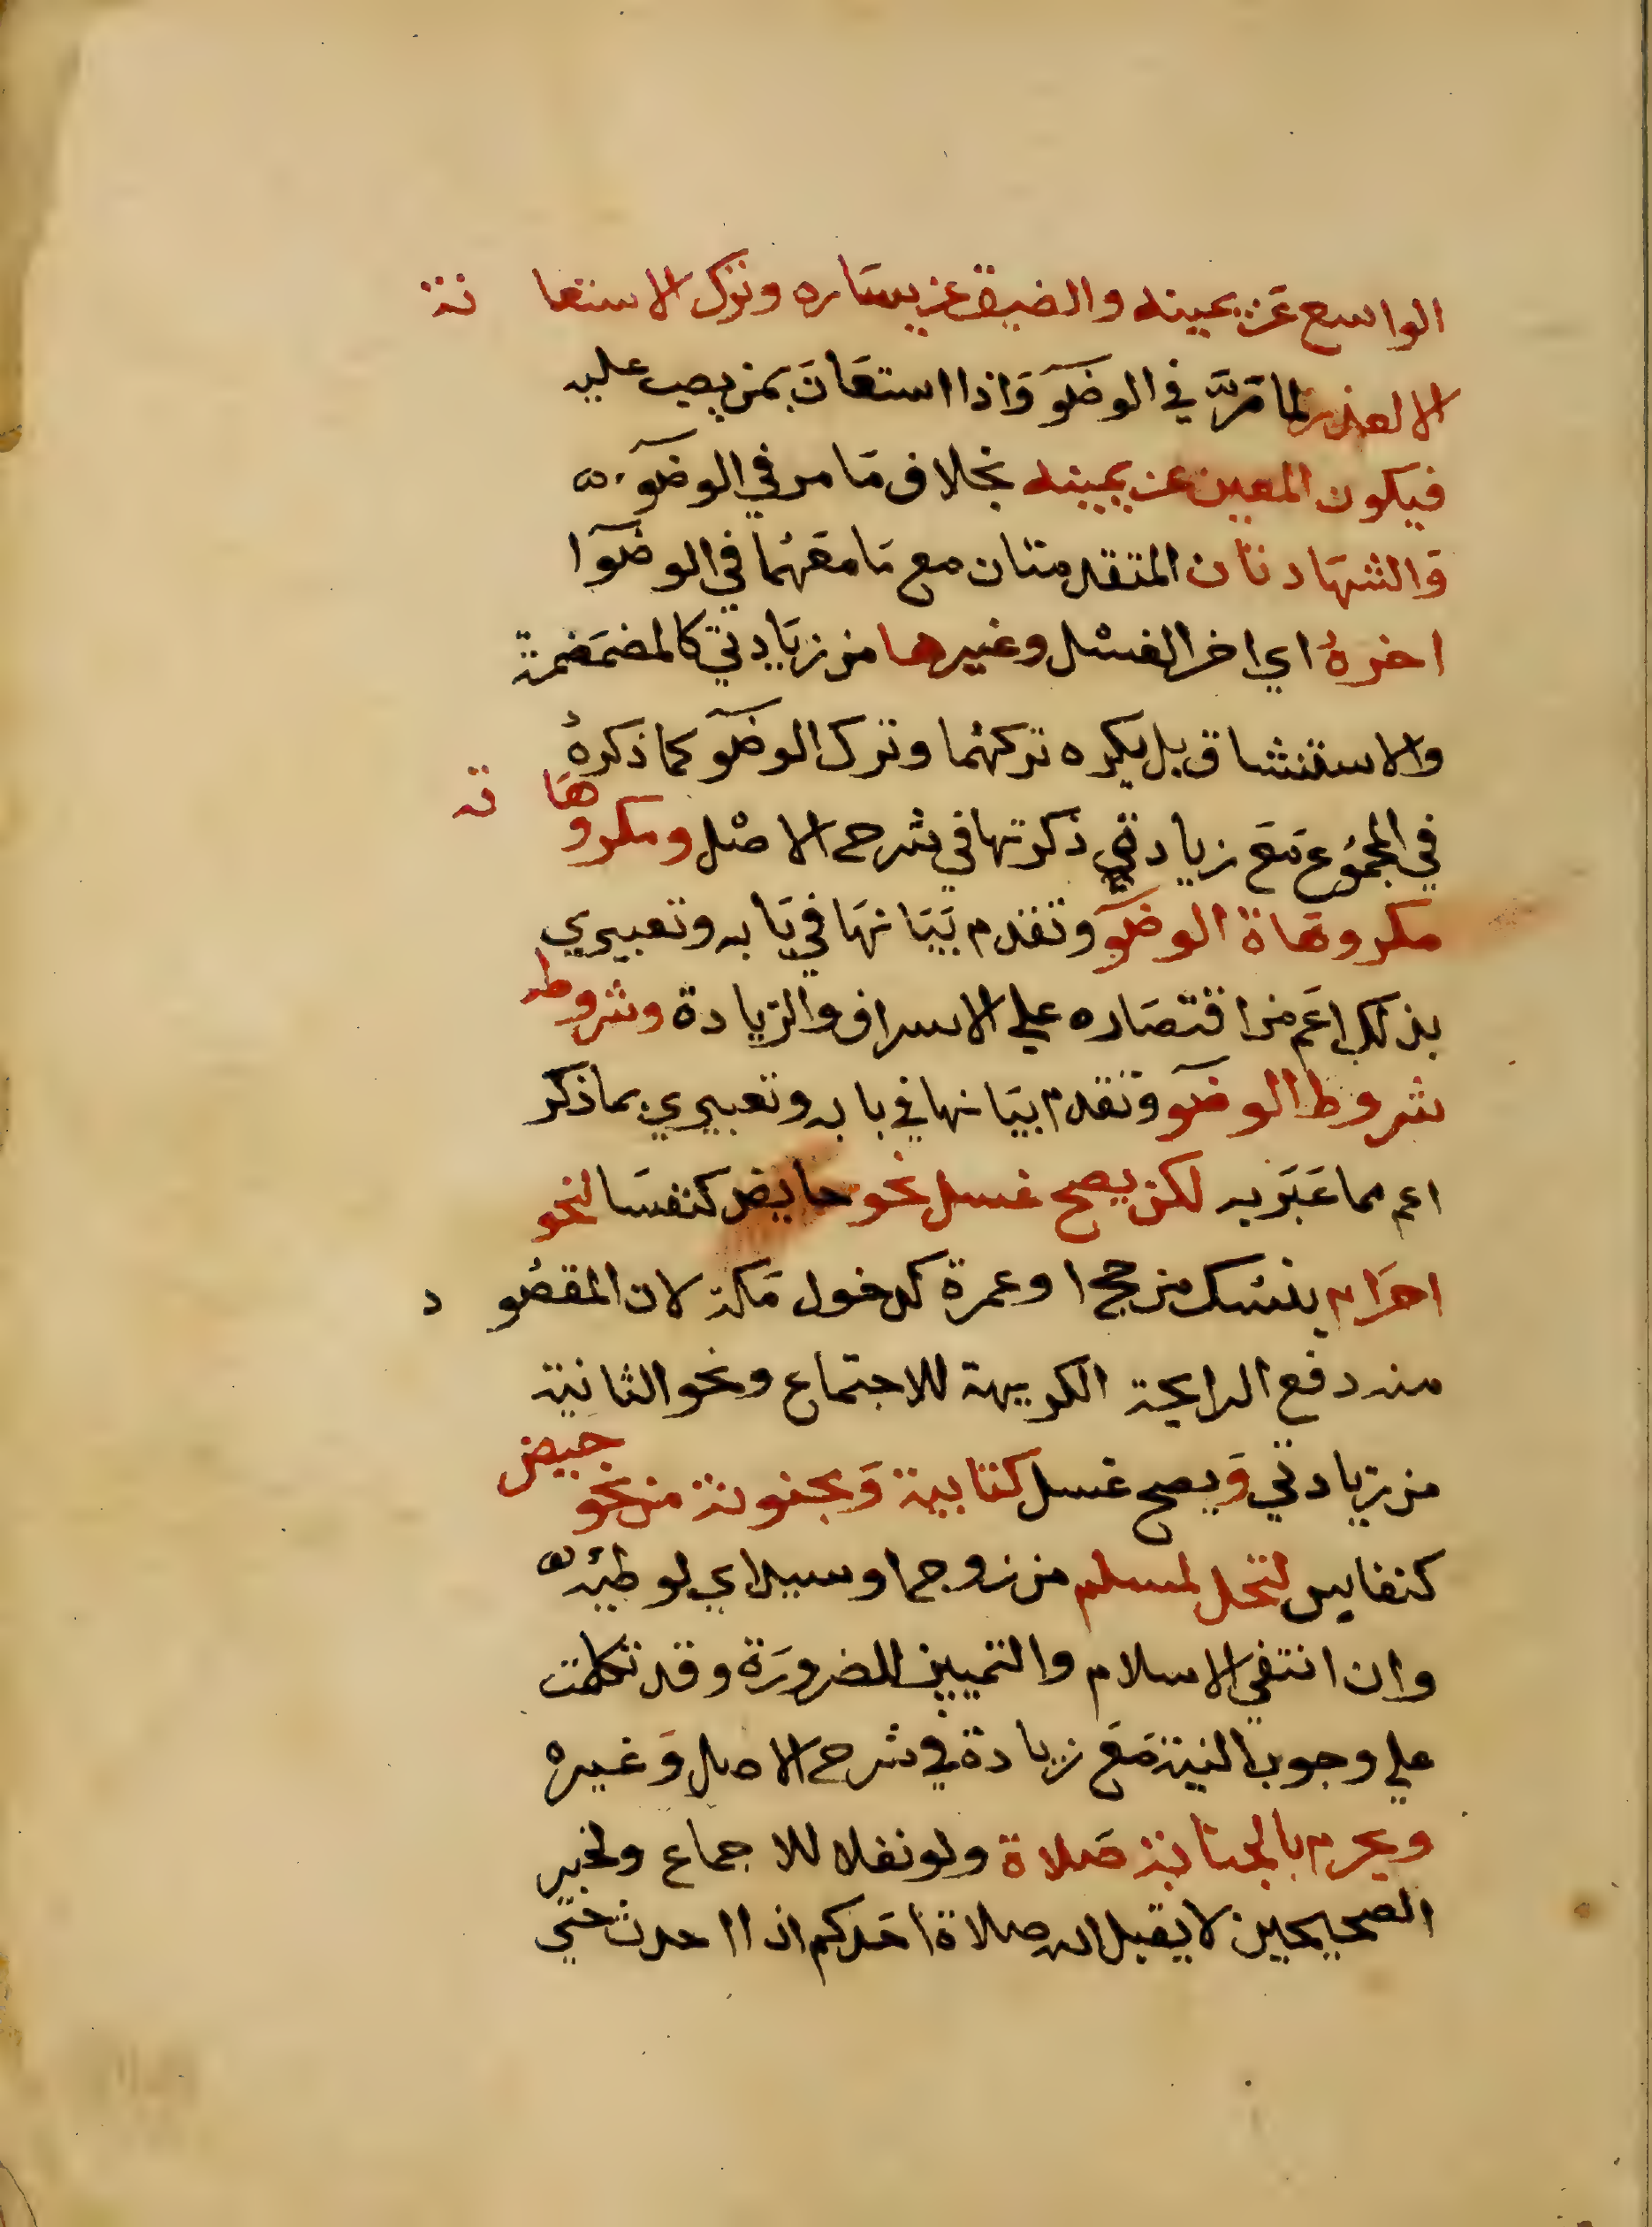 الواسع عَن يمينه والضيق عن يسَاره وترك الاستعانة
الا لعذر لما مَرَّ في الوضَوٓ وَاذا استعَانَ بمن يصب عليه
فيكون المعين عن يمينه بخلاف مَا مر في الوضوٓء
وَالشهَادتان المتقدمتان مع مَا معَهُما في الوضوٓا
اخرهُ اي اخر الغسْل وغيرها من زيَادتي كالمضمَضمة
والاستنشاق بل يكره تركهُما وترك الوضوٓ كما ذكرهُ
في المجمُوع مَعَ زيادتي ذكرتها في شرح الاصْل ومكروهَاته
مكروهَاة الوضوٓ وتقدم بَيَانهَا في بَابه وتعبيري
بذلك اعَم من اقتصَاره علي الاسراف والزيادة وشروطه
شروط الوضوٓ وتقدم بيَانها في بابه وتعبيري بما ذكر
اعم مما عَبَرَ به لكن يصح غسل نحو حايض كنفسَا لنحو
احرَام بنسُك من حج او عمرة كدخول مَكة لان المقصُود
منه دفع الرايحة الكريهة للاجتماع ونحو الثانية
من زيادتي وَيصح غسل كتابية وَمجنونة من نحو حيض
كنفاس لتحل لمسلم من زوجها وسيد اي لوطيِهِ
وان انتفي الاسلام والتمييز للضرورَة وقد تكلمت
علي وجوب النية مَعَ زيادة في شرح الاصل وَغيرهْ
ويحرم بالجنابة صَلاة ولو نفلا للاجماع ولخبر
الصحيحين لا يقبل الله صلاة احَدكم اذا احدث حتي